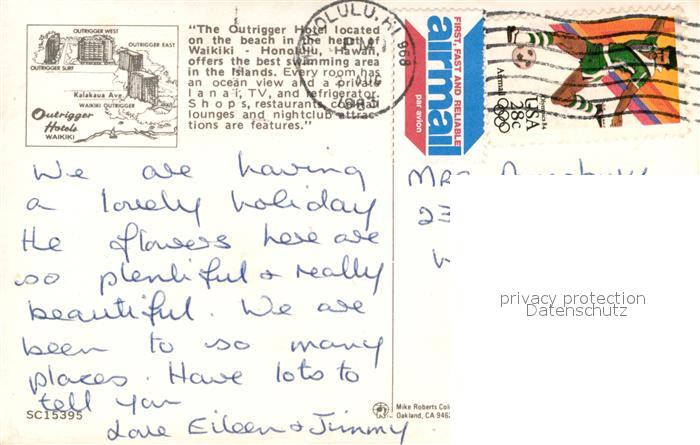 OUTRIGGER WEST
OUTRIGGER EAST
OUTRIGGER SURF
Kalakaua Ave
WAIKIKI OUTRIGGER
Outrigger
Hotels
WAIKIKI
"The Outrigger Hotel located
on the beach in the heart of
Waikiki - Honolulu, Hawaii,
offers the best swimming area
in the Islands. Every room has
an ocean view and a private
lanai, TV, and refrigerator.
Shops, restaurants, cocktail
lounges and nightclub attrac-
tions are features."
HONOLULU, HI 968
FIRST, FAST AND RELIABLE
airmail
par avion
Olympics 84
USA
28c
Airmail
We are having
a lovely holiday
the flowers here are
so plentiful & really
beautiful. We are
been to so many
places. Have lots to
tell you
Love Eileen & Jimmy
SC15395
Mrs
privacy protection
Datenschutz
Mike Roberts Col
Oakland, CA 9462